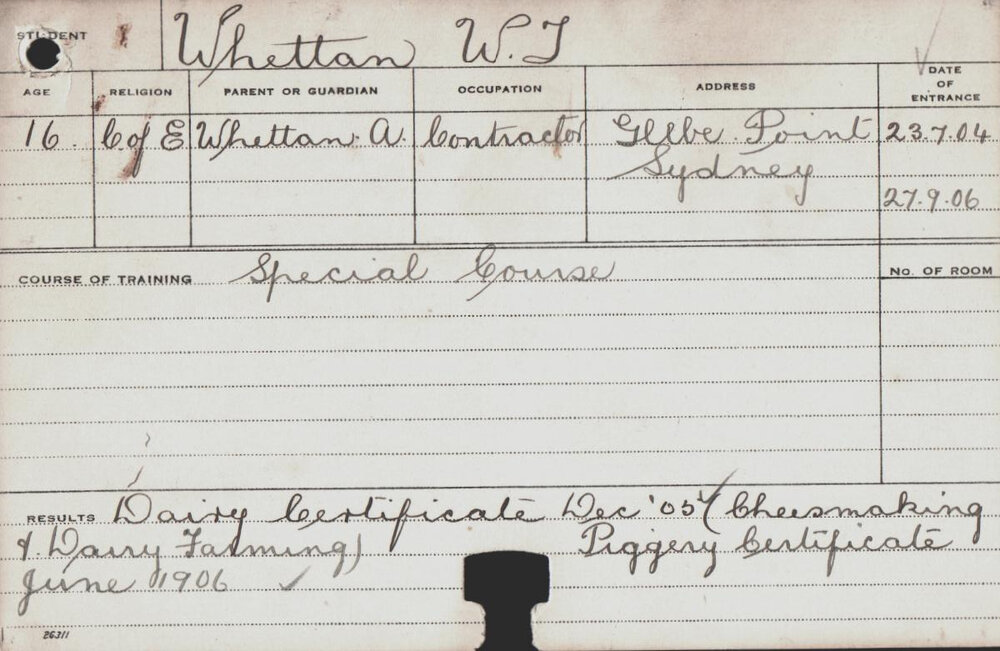 STUDENT Whettan W. J
AGE RELIGION PARENT OR GUARDIAN OCCUPATION ADDRESS DATE OF ENTRANCE
16. C of E Whettan. A. Contractor Glebe Point 23.7.04
Sydney
27.9.06
COURSE OF TRAINING Special Course No. OF ROOM
RESULTS Dairy Certificate Dec '05 (Cheesmaking
& Dairy Farming) Piggery Certificate
June 1906
26311